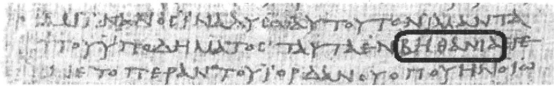 ΙΚΑΝΟСΙΝΑΛΥСΩΑΥΤΟΥΤΟΝΙΜΑΝΤΑ
ΤΟΥΥΠΟΔΗΜΑΤΟСΤΑΥΤΑΕΝΒΗΘΑΝΙΑΕΓΕ
ΝΕΤΟΠΕΡΑΝΤΟΥΙΟΡΔΑΝΟΥΟΠΟΥΗΝΟΙΩ